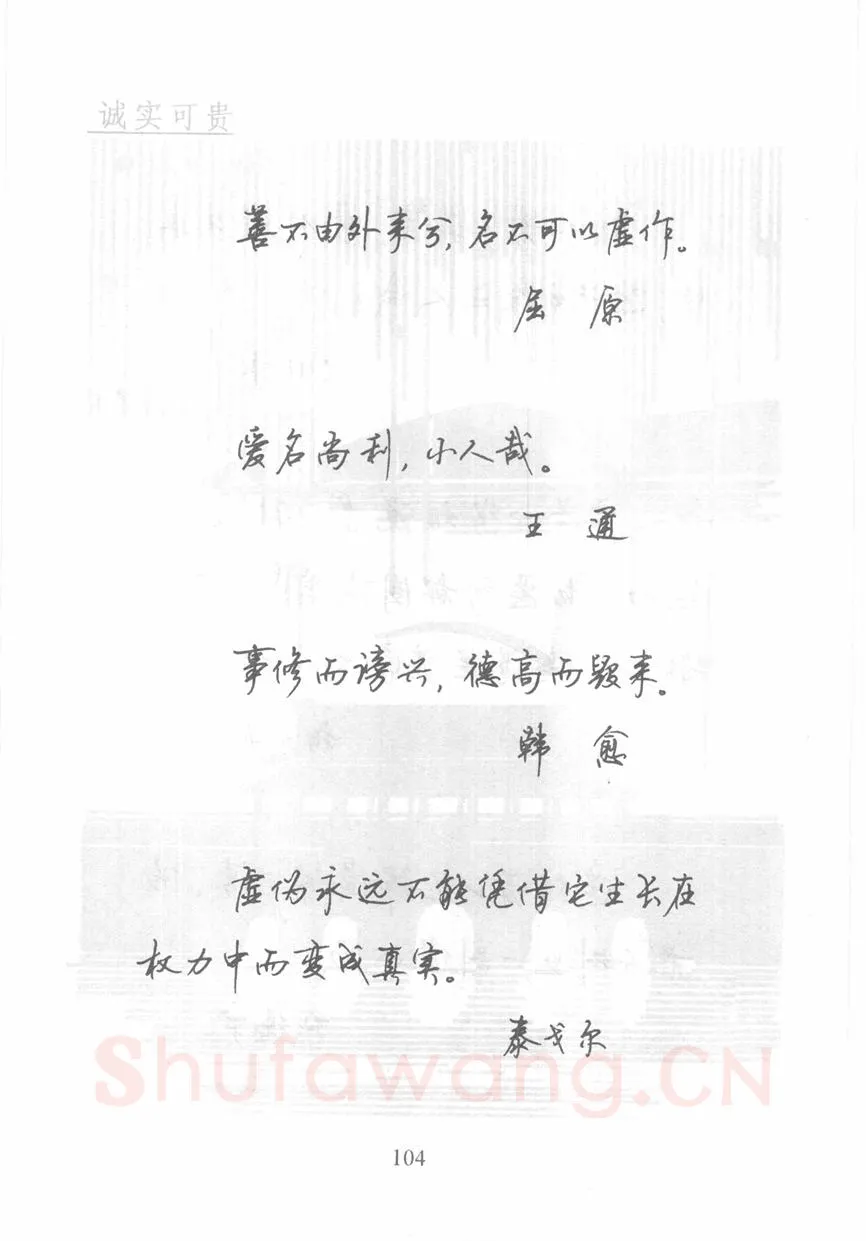 诚实可贵
善不由外来兮,名不可以虚作。
屈 原
爱名尚利,小人哉。
王 通
事修而谤兴,德高而毁来。
韩 愈
虚伪永远不能凭借它生长在
权力中而变成真实。
泰戈尔
Shufawang.CN
104